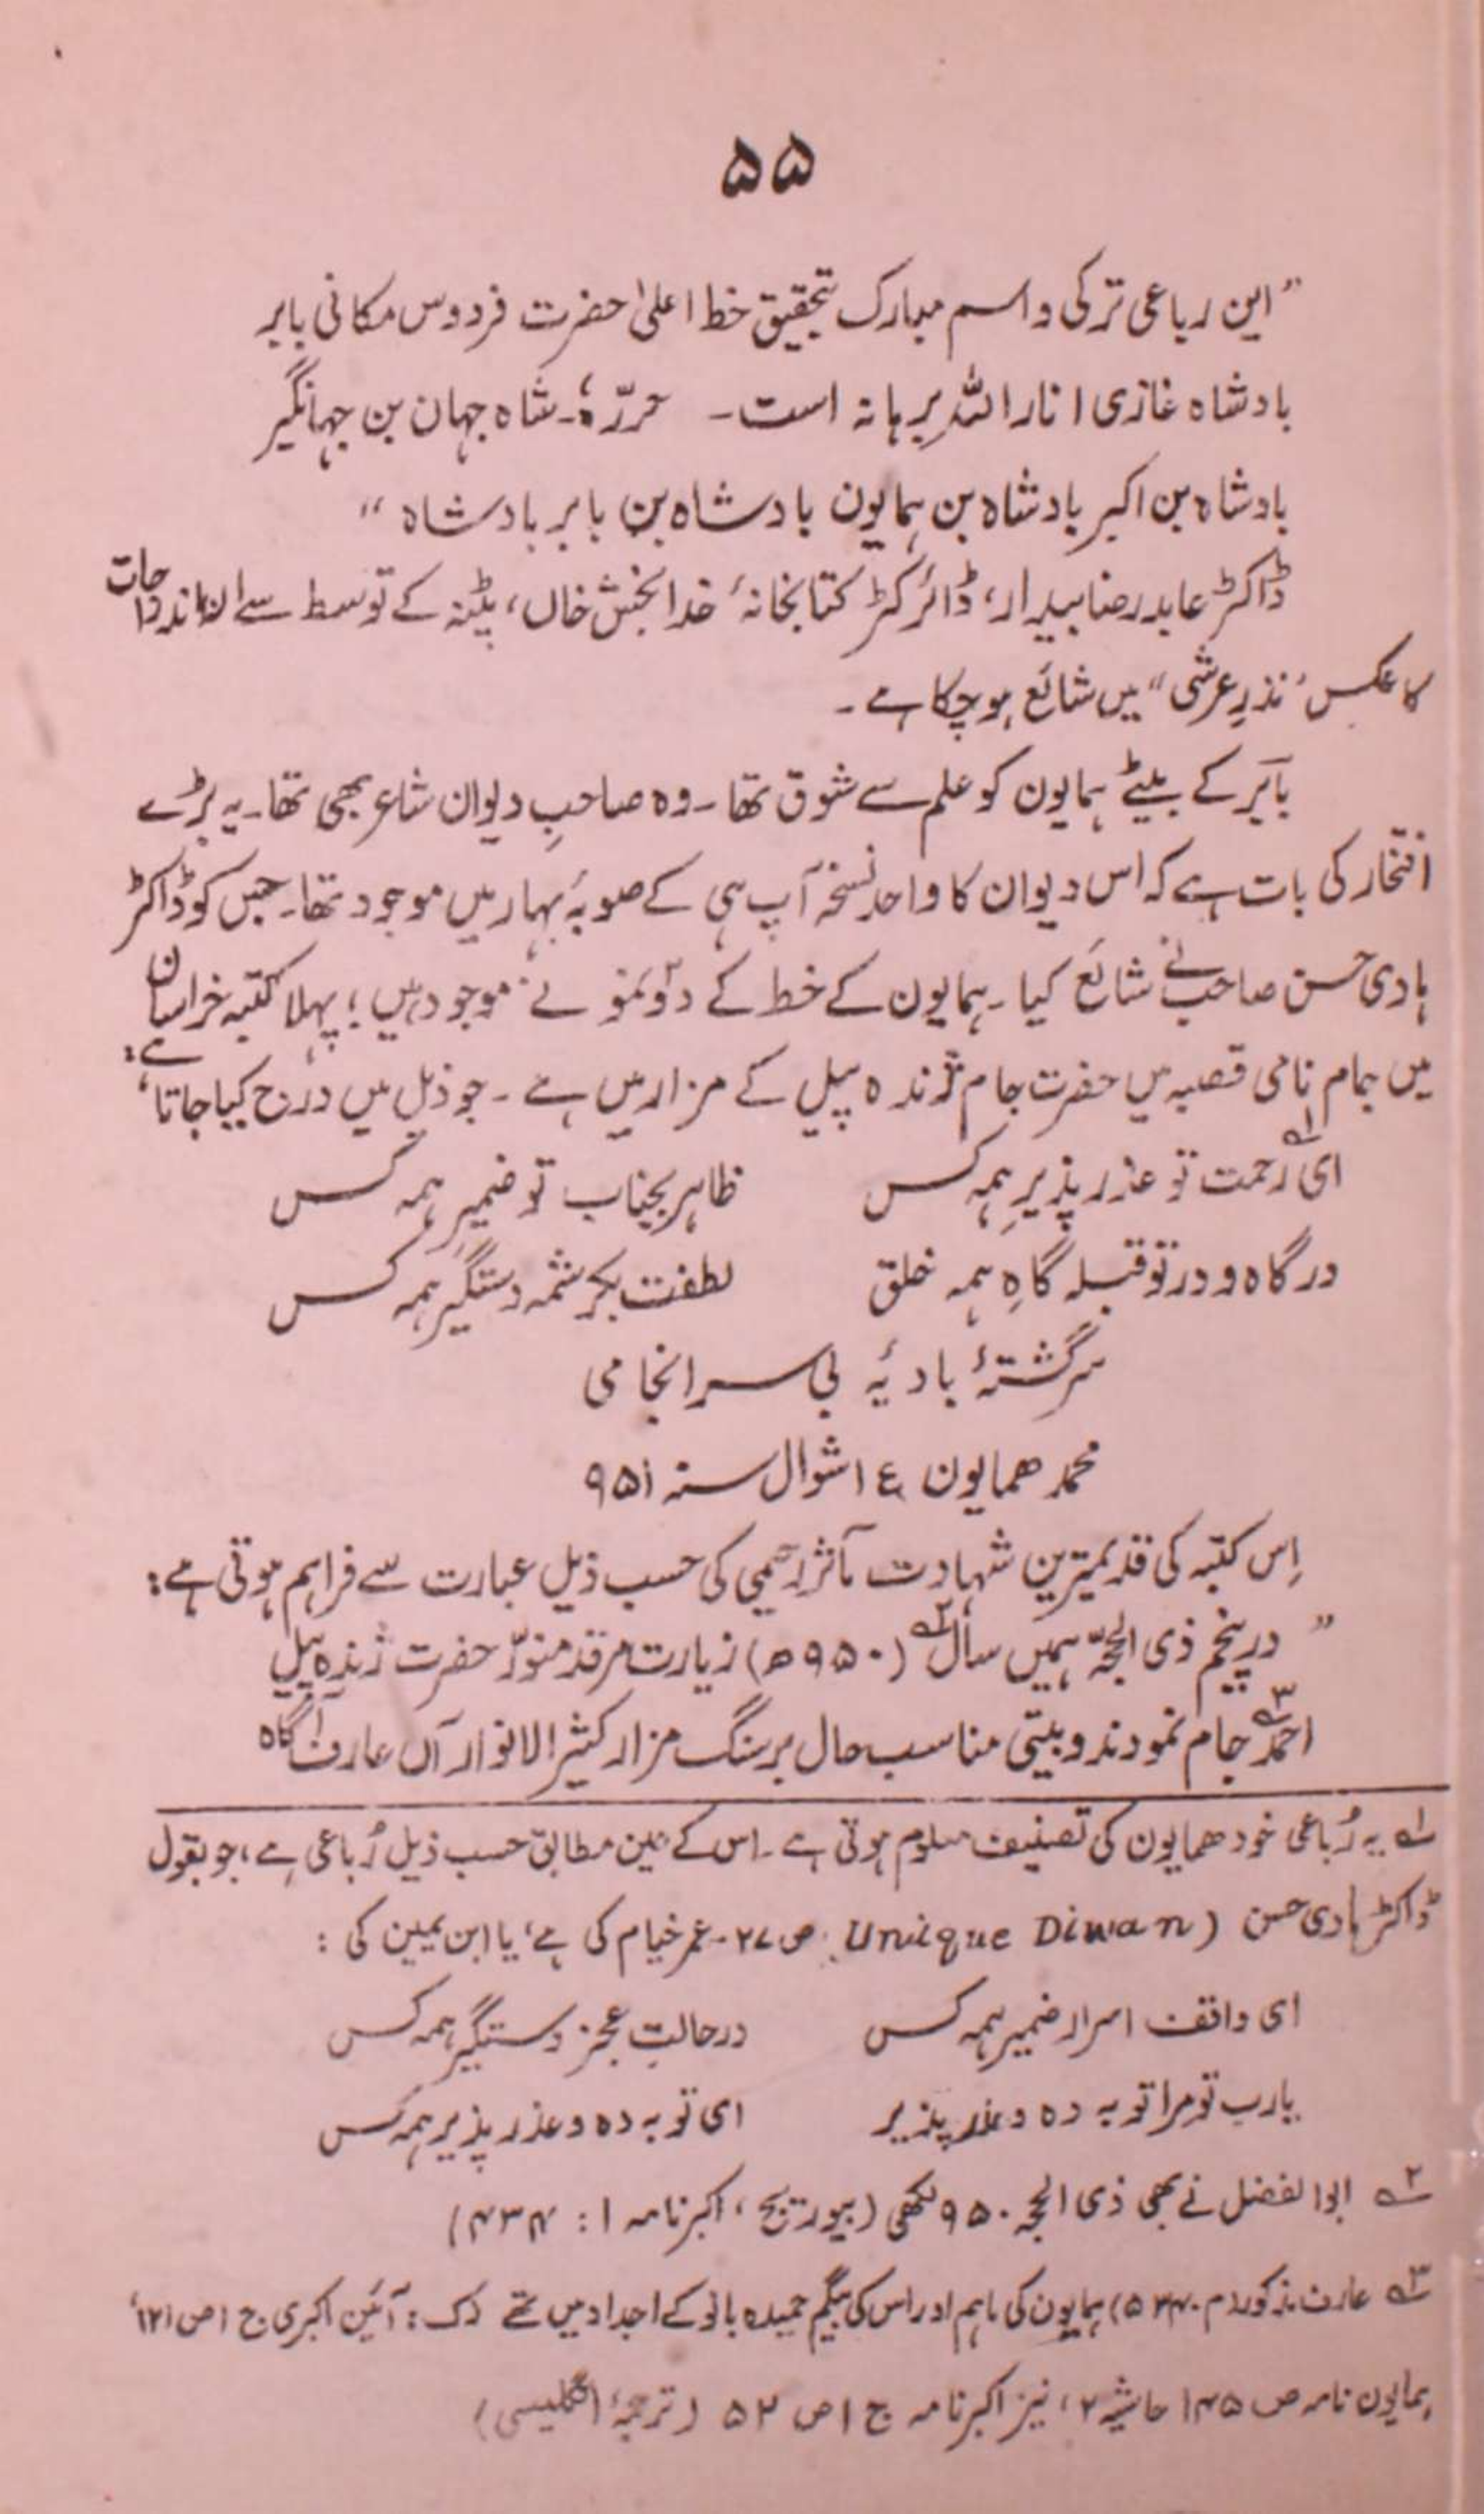 ۵۵
"این رباعی ترکی و اسم مبارک بتحقیق خط اعلیٰ حضرت فردوس مکانی بابر
بادشاہ غازی انار اللہ برہانہ است۔ حررّہٗ۔ شاہ جہان بن جہانگیر
بادشاہ بن اکبر بادشاہ بن ہمایون بادشاہ بن بابر بادشاہ"
ڈاکٹر عابد رضا بیدار، ڈائرکٹر کتابخانۂ خدا بخش خاں، پٹنہ کے توسط سے ان اندراجات
کا عکس "نذرِ عرشی" میں شائع ہو چکا ہے۔
بابَر کے بیٹے ہمایون کو علم سے شوق تھا۔ وہ صاحبِ دیوان شاعر بھی تھا۔ یہ بڑے
افتخار کی بات ہے کہ اس دیوان کا واحد نسخہ آپ ہی کے صوبۂ بہار میں موجود تھا۔ جس کو ڈاکٹر
ہادی حسن صاحب نے شائع کیا۔ ہمایون کے خط کے دو نمونے موجود ہیں؛ پہلا کتبہ خراسان
میں جام نامی قصبہ میں حضرت جام ژندہ پیل کے مزار میں ہے۔ جو ذیل میں درج کیا جاتا ہے:
ای رحمت تو عذر پذیرِ ہمہ کس ظاہر بجناب تو ضمیرِ ہمہ کس
درگاہ و در تو قبلہ گاہِ ہمہ خلق لطفت بکرشمہ دستگیر ہمہ کس
سرگشتۂ بادیۂ بی سرانجامی
محمد ھمایون ۱۴ شوال سنہ ۹۵۱
اِس کتبہ کی قدیمترین شہادت مآثر رحیمی کی حسب ذیل عبارت سے فراہم ہوتی ہے:
"در پنجم ذی الحجّہ ہمیں سال۲ (۹۵۰ھ) زیارت مرقد منوّر حضرت ژندہ پیل
احمد۳ جام نمودند و بیتی مناسب حال بر سنگ مزار کثیر الانوار آں عارف آگاہ
۱ یہ رُباعی خود ھمایون کی تصنیف معلوم ہوتی ہے۔ اس کے عین مطابق حسب ذیل رُباعی ہے، جو بقول
ڈاکٹر ہادی حسن (Unique Diwan ص ۲۷۔ عمر خیام کی ہے، یا ابن یمین کی:
ای واقف اسرار ضمیر ہمہ کس در حالتِ عجز دستگیر ہمہ کس
یارب تو مرا توبہ دہ و عذر پذیر ای توبہ دہ و عذر پذیر ہمہ کس
۲ ابوالفضل نے بھی ذی الحجہ ۹۵۰ لکھی (بیورتج، اکبرنامہ ۱: ۴۳۴)
۳ عارف مذکور (م ۵۳۴۰) ہمایون کی ماہم اور اس کی بیگم حمیدہ بانو کے اجداد میں تھے رک: آئین اکبری ج ۱ ص ۱۲۱،
ہمایون نامہ ص ۱۴۵ حاشیہ ۲، نیز اکبرنامہ ج ۱ ص ۵۲ (ترجمۂ انگلیسی)